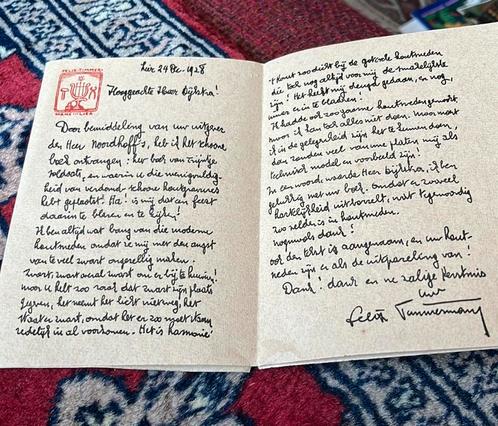 FELIX TIMMER
MANS = LIER
Lier 24 Dec. 1928
Hooggeachte Heer Dijkstra!
Door bemiddeling van uw uitgever
de Heer Noordhoff's, heb ik het schoone
boek ontvangen: het boek van Trijntje
soldaats, en waarin u die menigvuldig-
heid van verdond-schoone houtgravures
hebt geplaatst. Ha! is mij dat een feest
daarin te bleren en te kijken!
Ik ben altijd wat bang van die moderne
houtsneden omdat ze mij met den angst
van te veel zwart ongezellig maken.
Zwart, zwart overal zwart om er bij te huilen!
maar u hebt zoo raak dat zwart zijn plaats
gegeven, het neemt het licht niet weg, het
laat er zwart, omdat het er zoo moet staan,
redelijk in al voorkomen. Het is harmonie!
't Hout zoo dicht bij de gekorele houtsneden
die toch nog altijd voor mij de smakelijkste
zijn! Het heeft mij deugd gedaan, en nog,
immer er in te bladeren!
Ik hadde ook zoo gaarne houtsneden gemaakt
maar ik kan toch alles niet doen. Moest
ik in de gelegenheid zijn het te kunnen doen,
dan zouden veel van uwe platen mij als
technisch model en voorbeeld zijn!
In een woord, waarde Heer Dijkstra, ik ben
gelukkig met uw boek. omdat er zooveel
hartelijkheid uitborrelt, wat tegenwoordig
zoo zelden is in houtsneden.
nogmaals dank!
ook den tekst is aangenaam, en uw hout-
sneden zijn er als de uitspanseling van!
Dank! dank en ne zalige Kerstmis
uw
Felix Timmermans